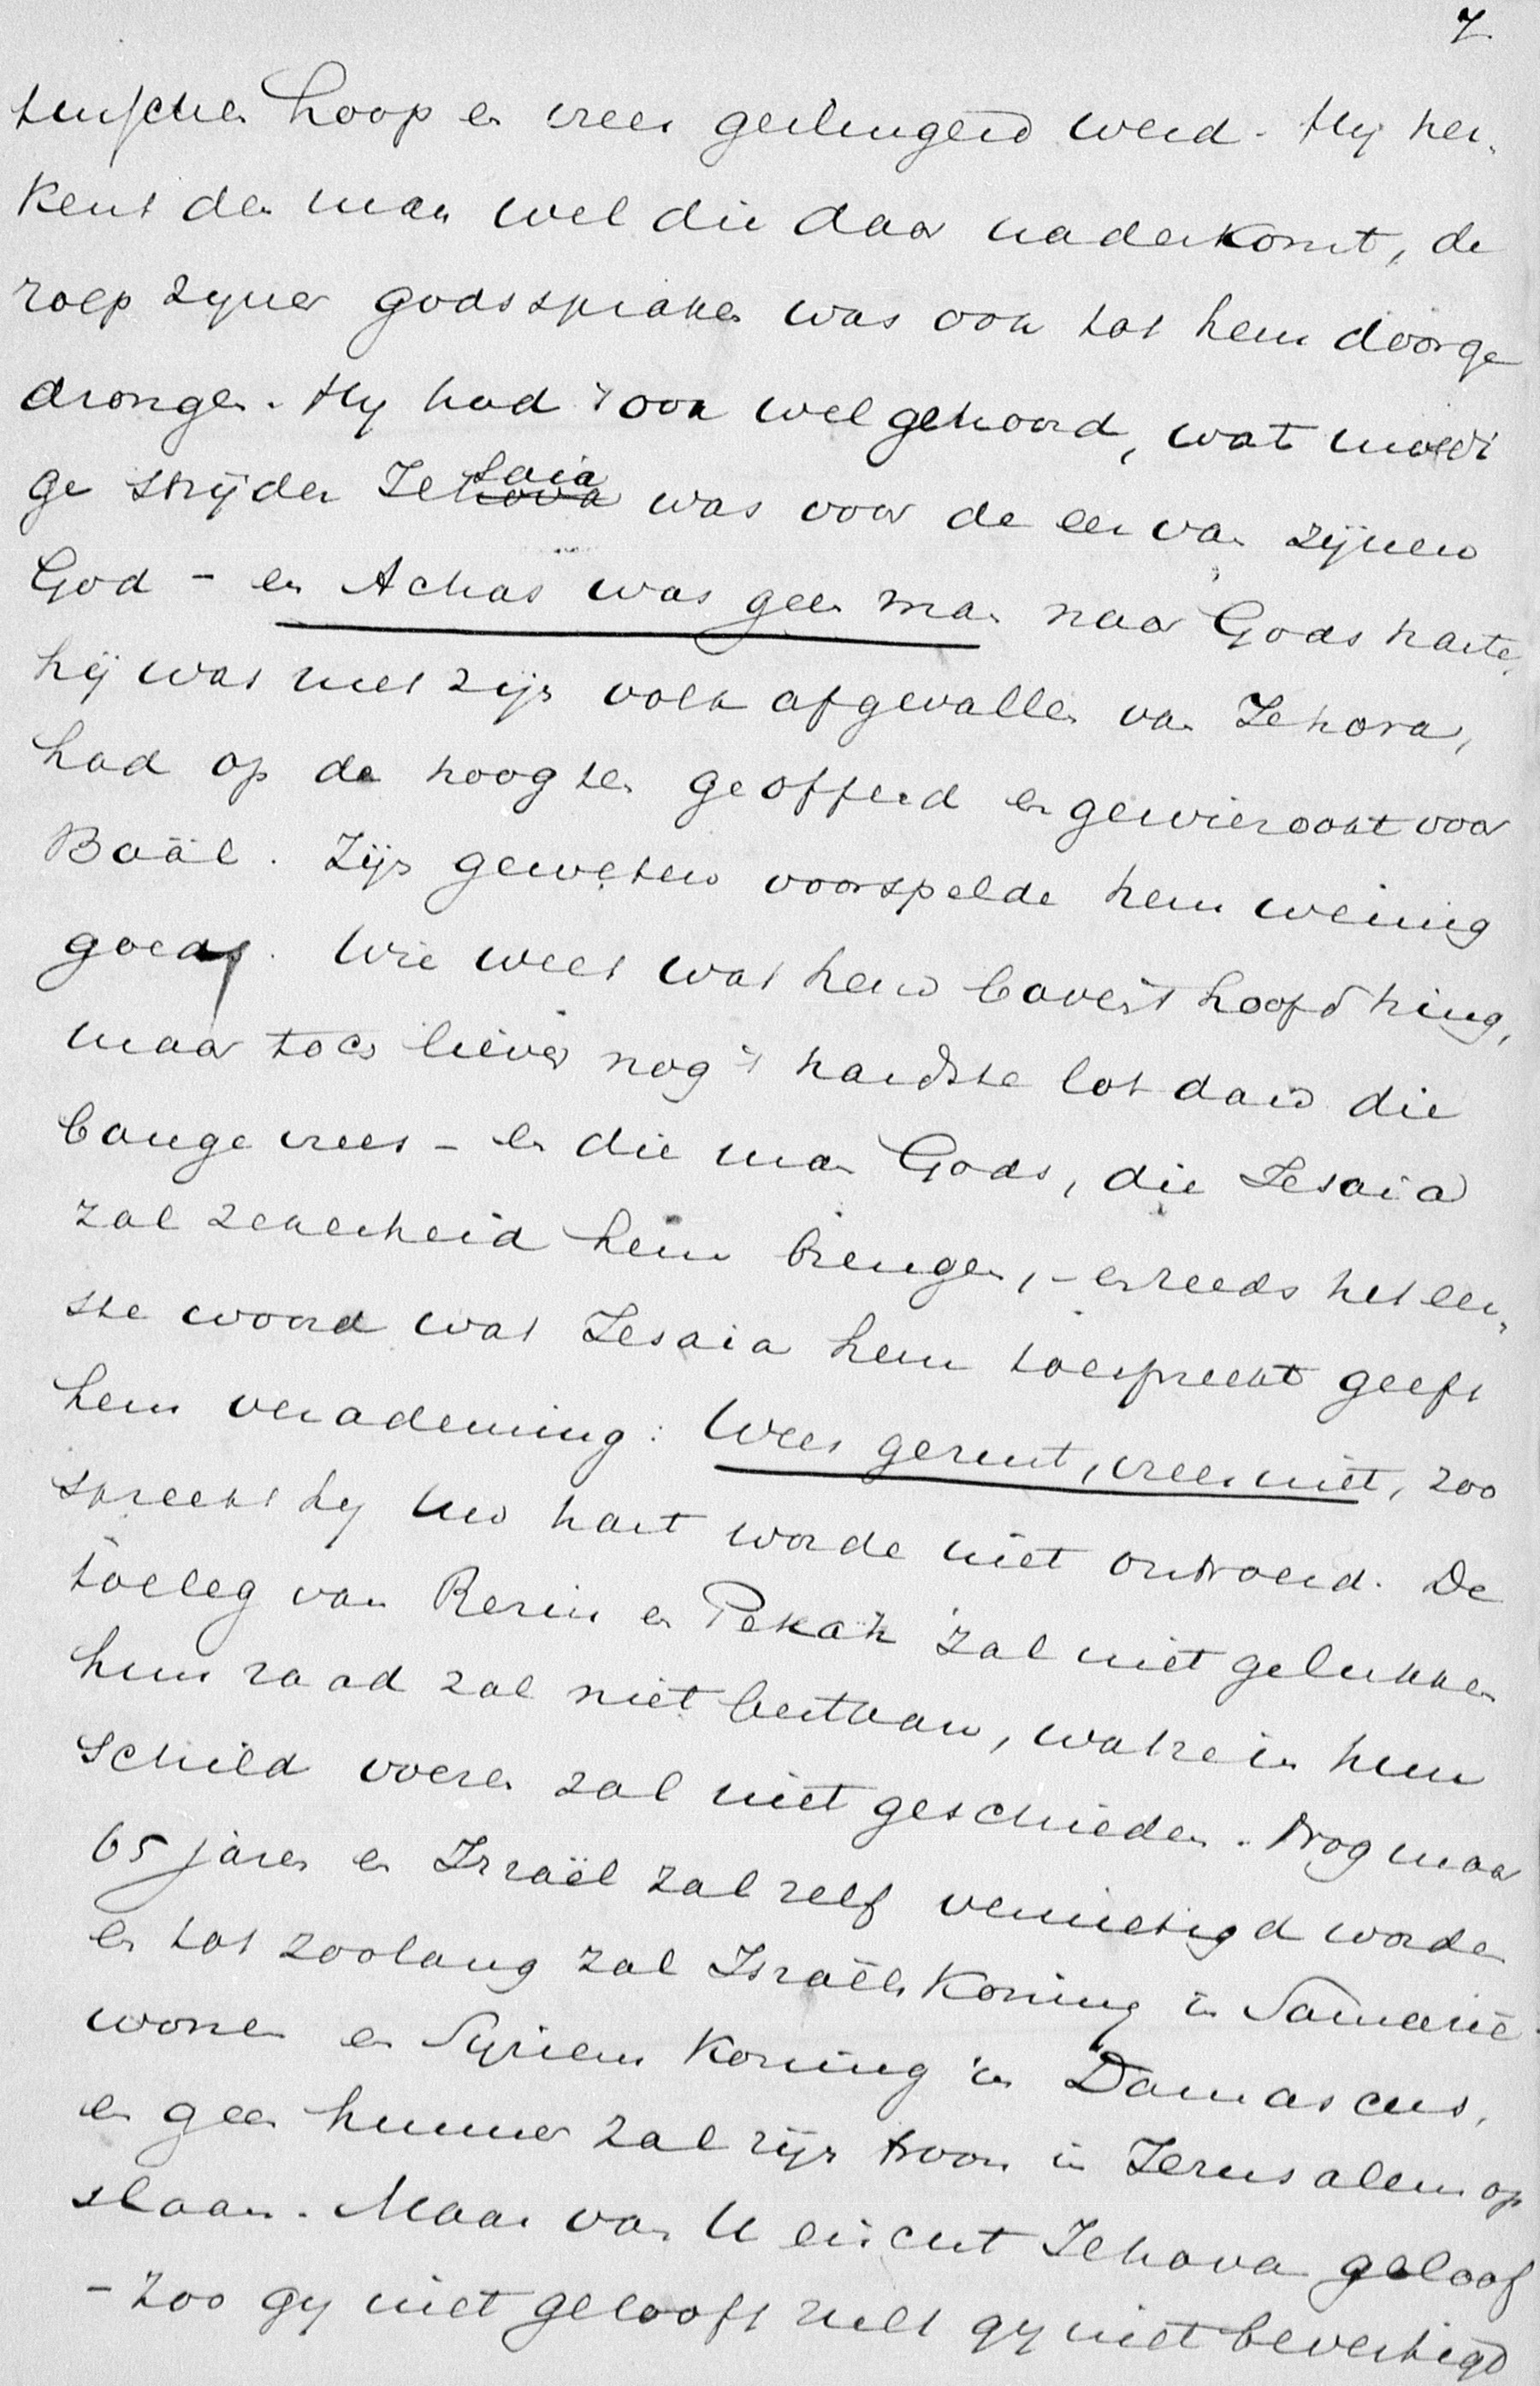 7
tusschen hoop en vrees geslingerd werd. Hy her„
kent den man wel die daar naderkomt, de
roep zyner godsspraken was ook tot hem doorge
drongen. Hy had 't ook wel gehoord, wat moedi
ge strijder Jesaia was voor de eer van zijnen
God – en Achas was geen man naar Gods harte,
hij was met zijn volk afgevallen van Jehova,
had op de hoogten geofferd en gewierookt voor
Baäl. Zijn geweten voorspelde hem weinig
goeds. Wie weet wat hem boven 't hoofd hing,
maar toch liever nog 't hardste lot dan die
bange vrees – en die man Gods, die Jesaia
zal zekerheid hem brengen, – en reeds het eer„
ste woord wat Jesaia hem toespreekt geeft
hem verademing: Wees gerust, vrees niet, zoo
spreekt hy uw hart worde niet ontroerd. De
toeleg van Rezin en Pekah zal niet gelukken
hun raad zal niet bestaan, wat ze in hun
schild voeren zal niet geschieden. Nog maar
65 jaren en Israël zal zelf vernietigd worden
en tot zoolang zal Israëls Koning in Samarië
wonen en Syriens Koning in Damascus,
en geen hunner zal zijn troon in Jerusalem op
slaan. Maar van U eischt Jehova geloof
– zoo gy niet gelooft zult gy niet bevestigd